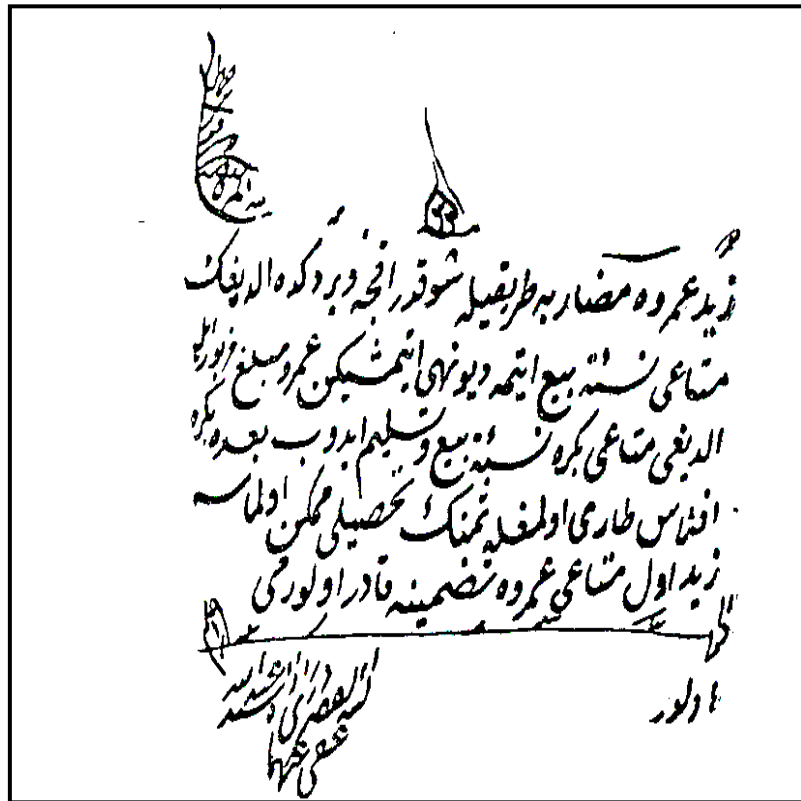 زيد عمروه مضاربه طريقيله شو قدر اقچه ويردكده الديغك
متاعى نسئة بيع ايتمه ديو نهى ايتمشيكن عمرو مبلغ مزبور ايله
الديغى متاعى بكره نسئة بيع و تسليم ايدوب بعده بكره
افلاس طارى اولمغله ثمنك تحصيلى ممكن اولماسه
زيد اول متاعى عمروه تضمينه قادر اولورمى
الجواب
اولور
عفى عنهما